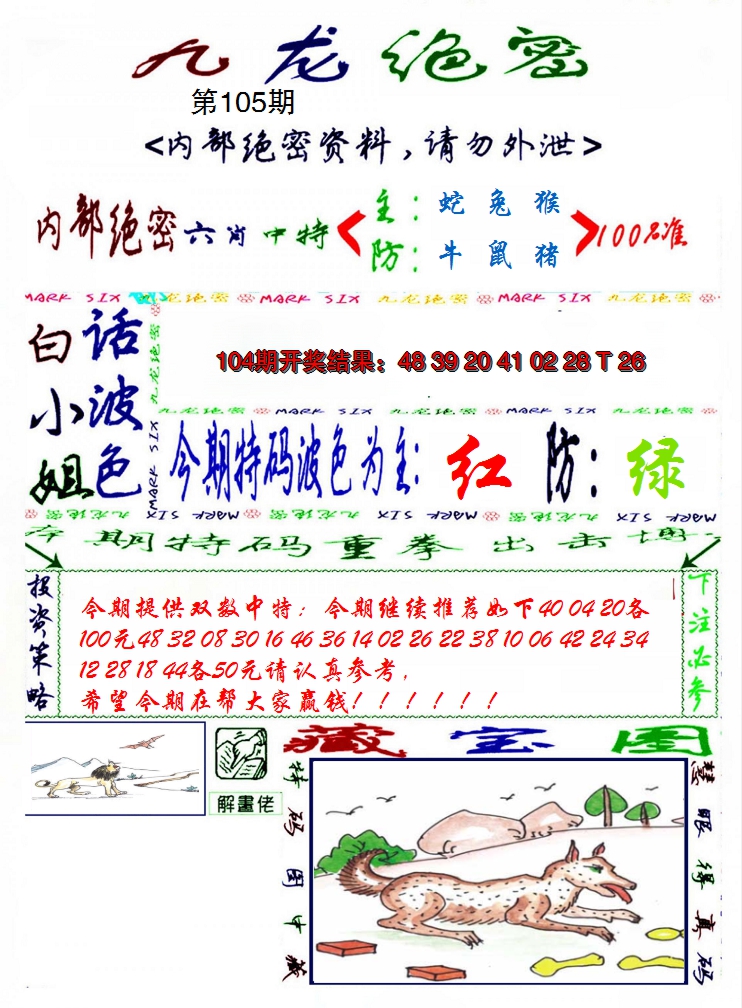 九龙绝密
第105期
<内部绝密资料,请勿外泄>
内部绝密六肖中特
主:蛇 兔 猴
防:牛 鼠 猪
100%准
MARK SIX 九龙绝密 MARK SIX 九龙绝密 MARK SIX 九龙绝密
白小姐
话波色
九龙绝密
MARK SIX
104期开奖结果:48 39 20 41 02 28 T 26
九龙绝密 MARK SIX 九龙绝密 MARK SIX 九龙绝密
今期特码波色为主:红 防:绿
MARK SIX 九龙绝密 MARK SIX 九龙绝密 MARK SIX 九龙绝密
本期特码重拳出击博
投资策略
今期提供双数中特:今期继续推荐如下40 04 20各
100元48 32 08 30 16 46 36 14 02 26 22 38 10 06 42 24 34
12 28 18 44各50元请认真参考,
希望今期在帮大家赢钱!!!!!!
下注必参
解畫佬
藏宝图
特码图中藏
慧眼得真码